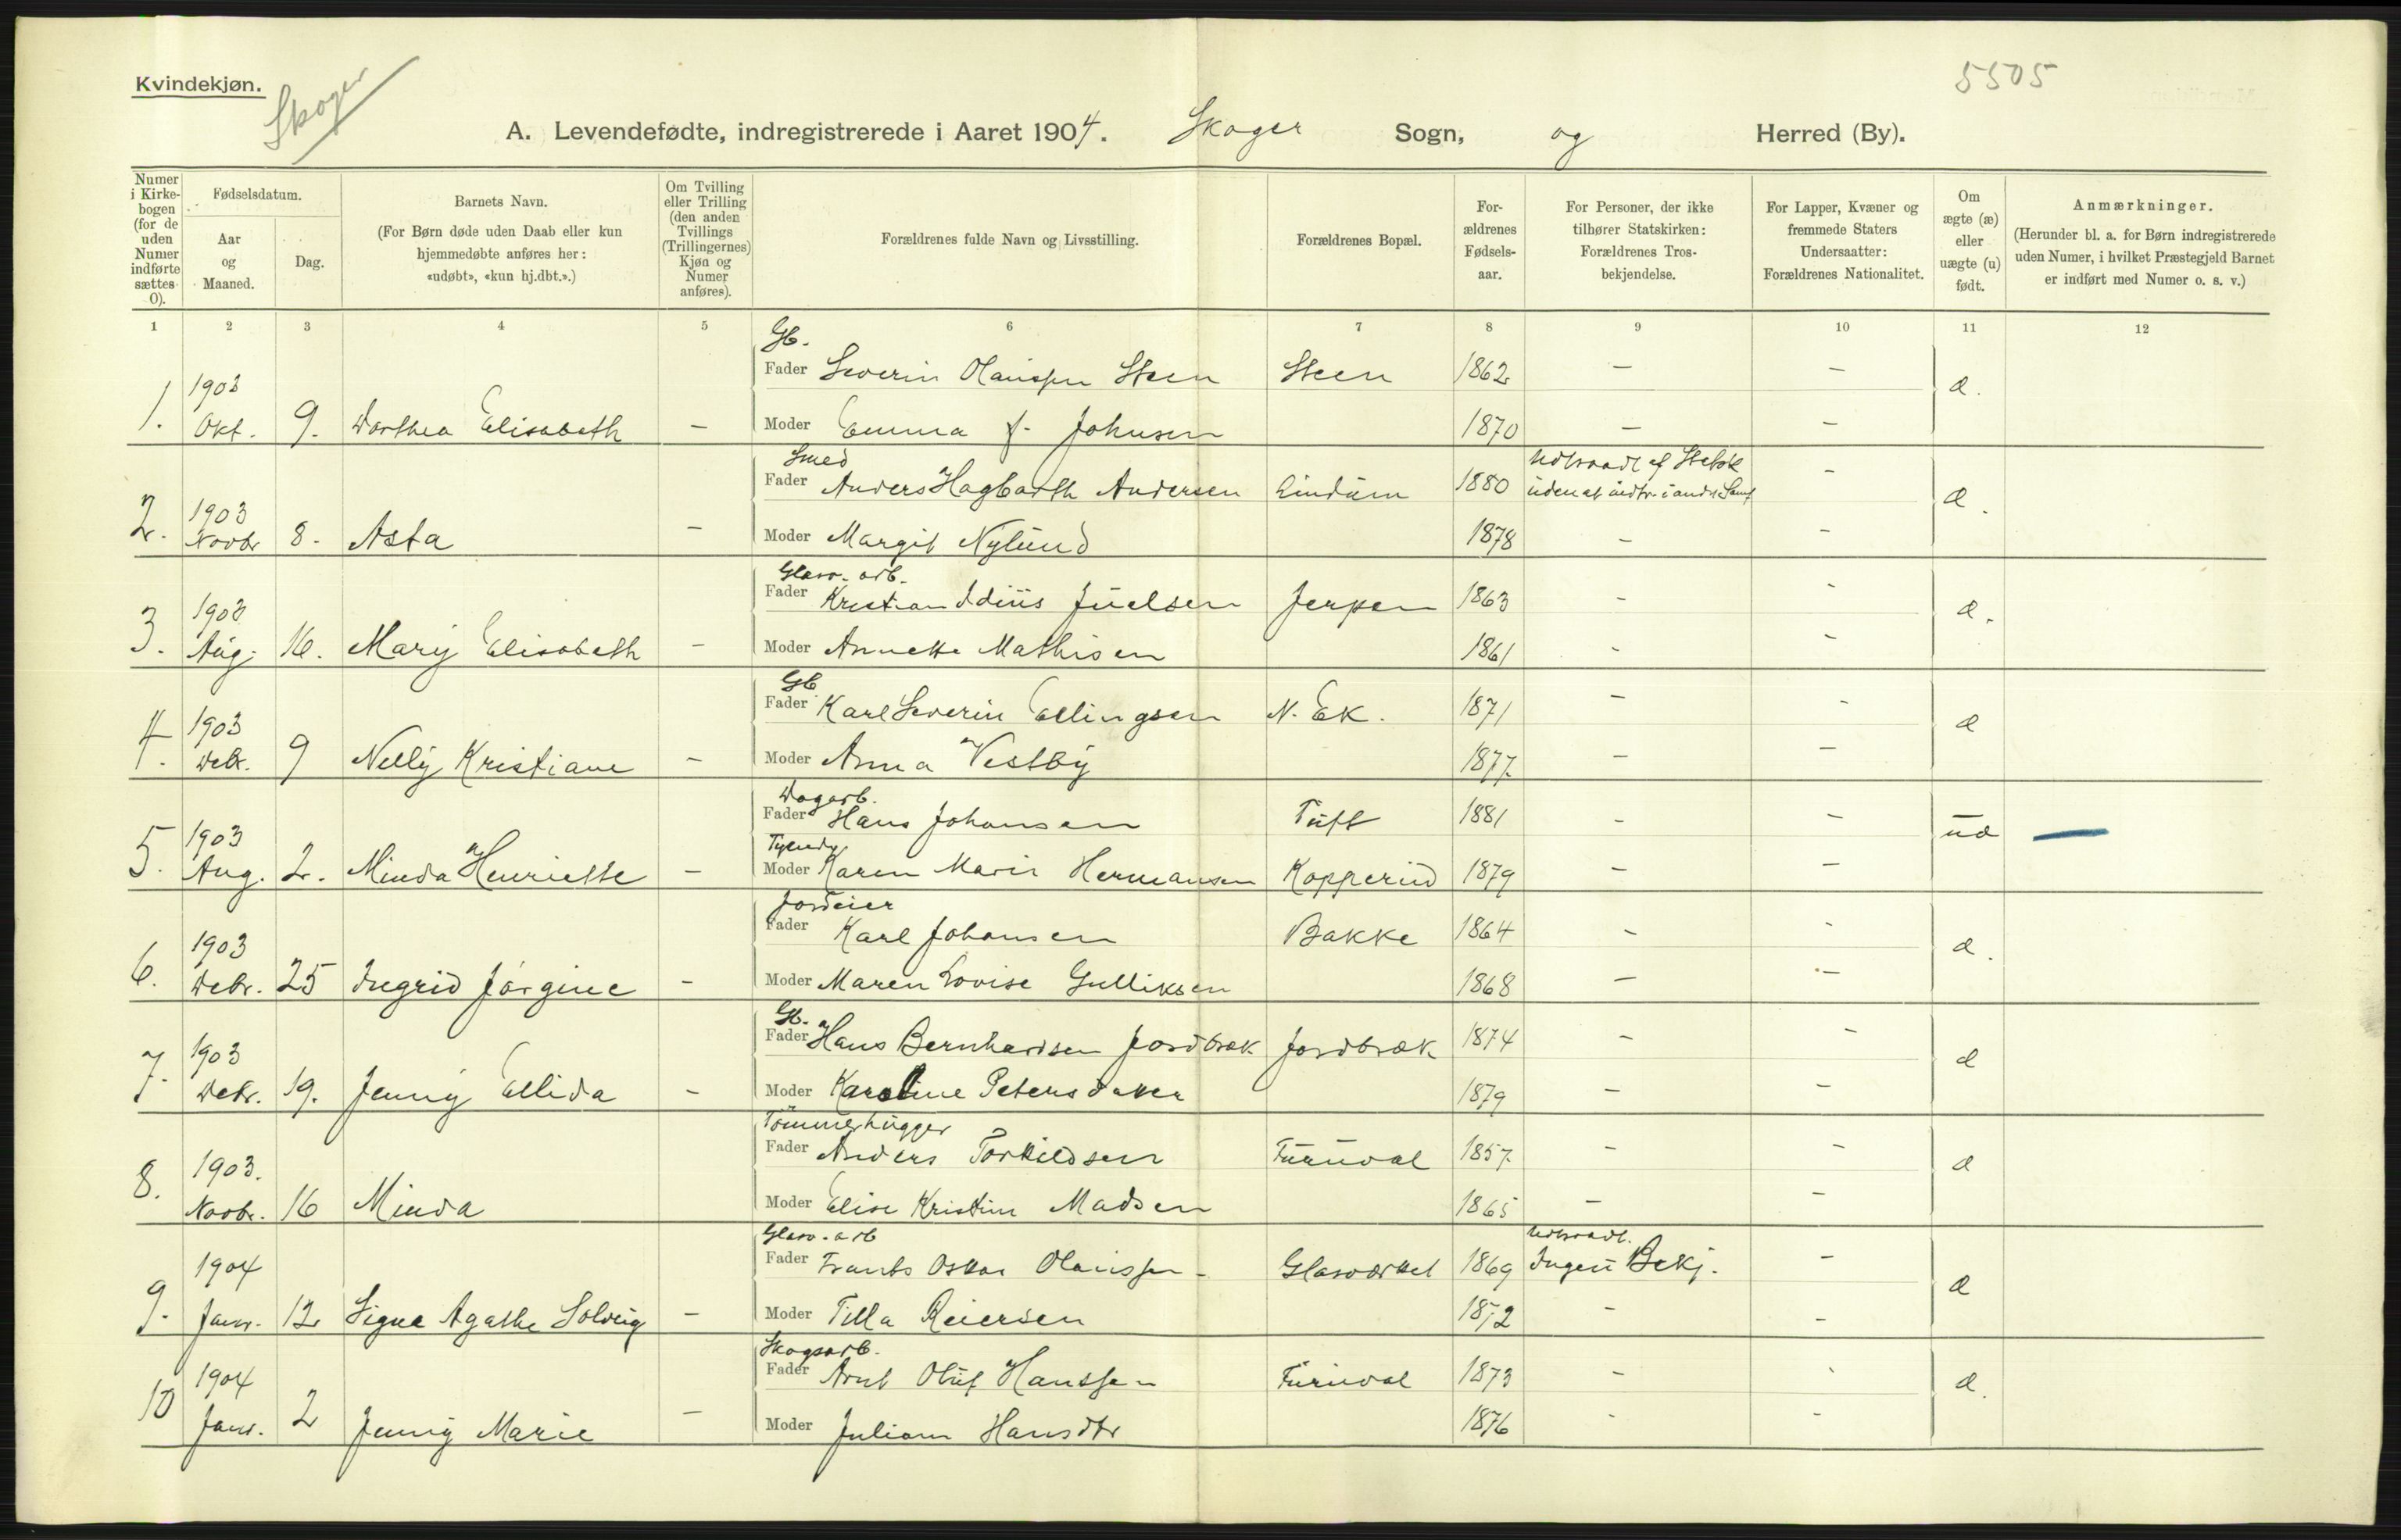 Kvindekjøn.
Skoger
5505
A. Levendefødte, indregistrerede i Aaret 1904. Skoger Sogn, og Herred (By).
Numer i Kirkebogen (for de uden Numer indførte sættes 0).
Fødselsdatum.
Aar og Maaned.
Dag.
Barnets Navn.
(For Børn døde uden Daab eller kun hjemmedøbte anføres her: «udøbt», «kun hj.dbt.».)
Om Tvilling eller Trilling (den anden Tvillings (Trillingernes) Kjøn og Numer anføres).
Forældrenes fulde Navn og Livsstilling.
Forældrenes Bopæl.
Forældrenes Fødselsaar.
For Personer, der ikke tilhører Statskirken: Forældrenes Trosbekjendelse.
For Lapper, Kvæner og fremmede Staters Undersaatter: Forældrenes Nationalitet.
Om ægte (æ) eller uægte (u) født.
Anmærkninger.
(Herunder bl. a. for Børn indregistrerede uden Numer, i hvilket Præstegjeld Barnet er indført med Numer o. s. v.)
1 2 3 4 5 6 7 8 9 10 11 12
Gb.
Fader Severin Olaussen Steen Steen 1862 — —
1. 1903 Okt. 9. Dorthea Elisabeth — æ.
Moder Emma f. Johnsen 1870 — —
Smed
Fader Anders Hagbarth Andersen Lindum 1880 Udtraadt af Statsk. uden at indtr. i andet Samf —
2. 1903 Novbr 8. Asta — æ.
Moder Margit Nylund 1878 — —
Glasv. arb.
Fader Kristian Idius Juelsen Jerpen 1863 - -
3. 1903 Aug. 16. Mary Elisabeth — æ.
Moder Annette Mathisen 1861 - -
Gb
Fader Karl Severin Ellingsen N. Ek. 1871 — -
4. 1903 Debr. 9 Nelly Kristiane — æ
Moder Anna Vestby 1877. — —
Dagarb.
Fader Hans Johansen Tuft 1881 - —
5. 1903 Aug. 2. Minda Henriette — uæ —
Tyende
Moder Karen Marie Hermansen Kopperud 1879 — —
Jordeier
Fader Karl Johansen Bakke 1864 - -
6. 1903 Debr. 25 Ingrid Jørgine — æ.
Moder Maren Lovise Gulliksen 1868 — —
Gb.
Fader Hans Bernhardsen Jordbræk Jordbræk 1874 — —
7. 1903 Debr. 19. Jenny Ellida — æ
Moder Karoline Petersdatter 1879 — —
Tømmerhugger
Fader Anders Torkildsen Furuval 1857. — —
8. 1903. Novbr. 16 Minda æ
Moder Elise Kristine Madsen 1865 — —
Glasv. arb
Fader Frants Oskar Olaussen - Glasværket 1869 Udtraadt. Ingen Bekj. —
9. 1904 Janr. 12 Signe Agathe Solveig — æ
Moder Tilla Reiersen 1872 - —
Skogsarb.
Fader Arnt Oluf Hanssen Furuval 1873 - -
10 1904 Janr. 2 Jenny Marie — æ.
Moder Juliane Hansdtr 1876 - -